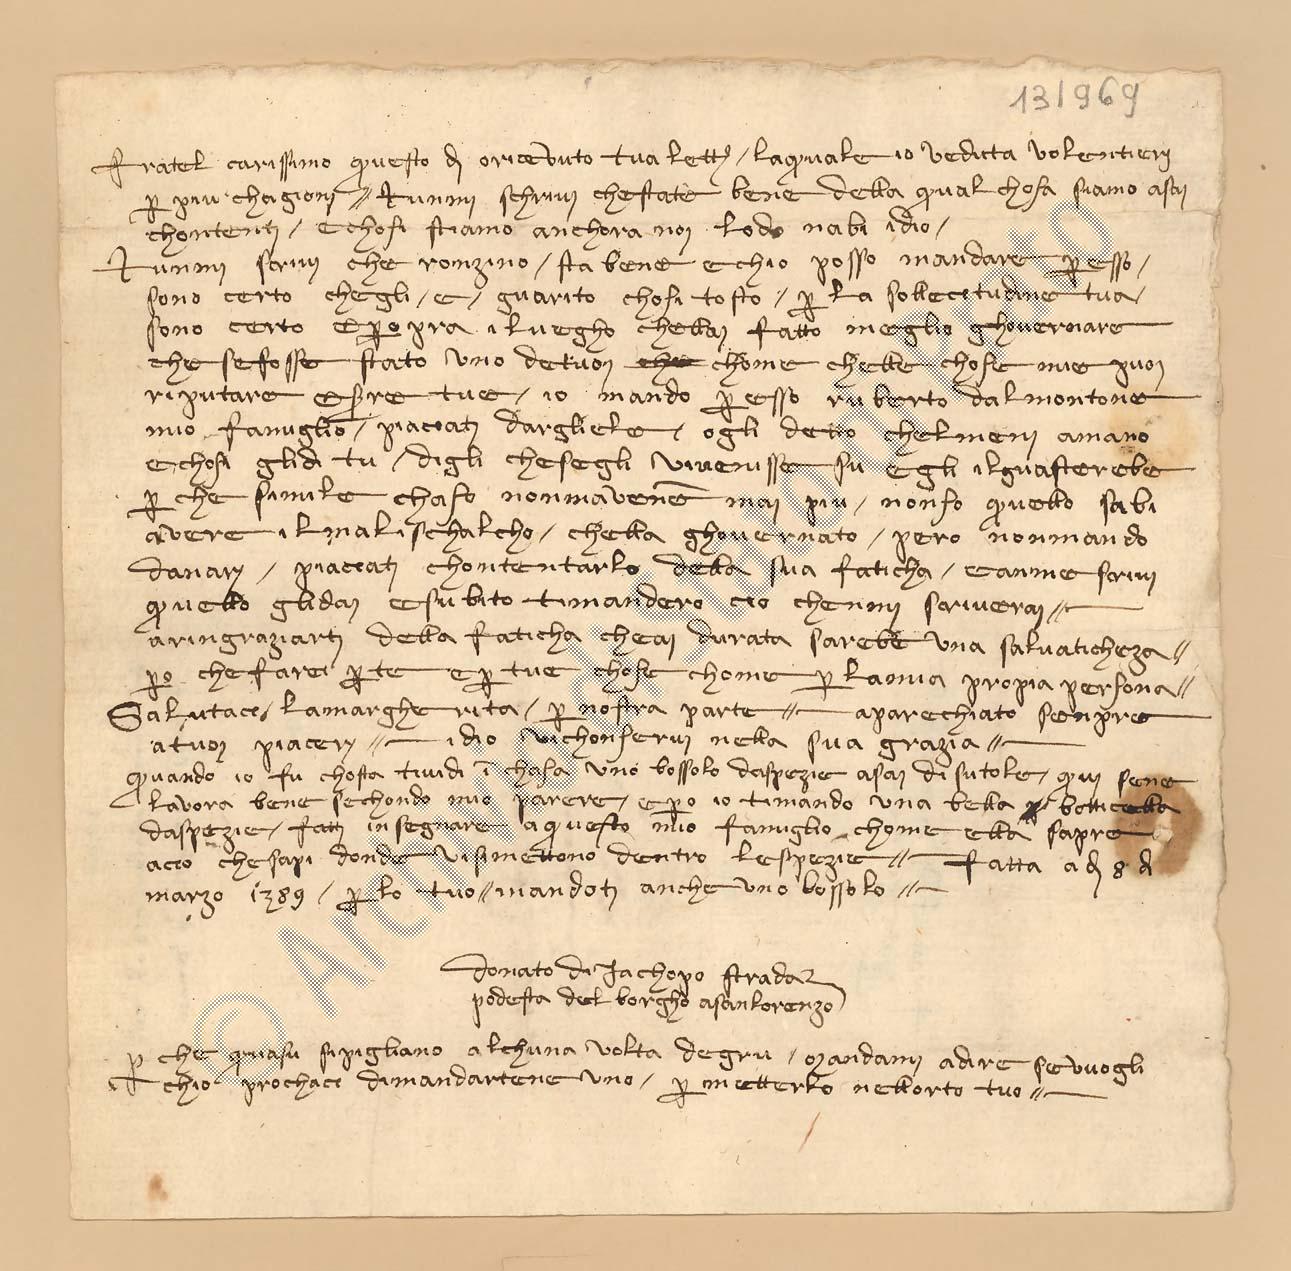 131969
fratel carissimo questo dì oricevuto tua lettª / laquale io vedicta volentierj
ꝑ piu chagionj // tummj schrivj chestate bene della qual chosa siamo asaj
chontentj / echosi stiamo anchora noj lodo nabi idio /
tummj scrivj che ronzino / sta bene echio posso mandare ꝑ esso /
sono certo chegli / e / guarito chosi tosto / ꝑ la sollecitudine tua /
sono certo eꝑo pra iluegho chellaj fatto meglio ghovernare
che sefosse stato uno detuoj che chome chelle chose mie puoj
riputare esꝑre tue / io mando ꝑ esso ruberto dalmontone
mio famiglio / piacciatj dargliele / ogli detto chelmenj amano
echosi glidi tu / digli chesegli vivenisse su egli ilguasterebe
ꝑ che simile chaso nonmavene maj piu / nonso quello sabi
avere ilmalischalcho / chella ghovernato / pero nonmando
danarj / piacciatj chontentarlo della sua faticha / eanme scrivj
quello glidaj esubito timandero cio chemmj scriveraj //
aringraziartj della faticha cheaj durata sarebe una salvaticheza //
ꝑo chefarei ꝑ te eꝑ tue chose chome ꝑ lamia propia persona //
Salutaci lamargherita / ꝑ nostra parte // aparechiato senpre
atuoj piacerj // idio vichonservj nella sua grazia //
quando io fu chosta tividi ī chasa uno bossolo daspezie asaj disutole / quj sene
lavora bene sechondo mio parere / eꝑo io timando una bella botticella
daspezie / fattj insegnare aquesto mio famiglio chome ella sapre
accio chesapi donde visimettono dentro lespezie // fatta adj 8 dj
marzo 1389 / ꝑ lo tuo // mandotj anche uno bossolo //
donato di Jachopo strada
podesta del borgho asanlorenzo
ꝑ che quasu sipigliano alchuna volta degru / mandamj adire sevuogli
chio prochacci dimandartene uno / ꝑ metterlo nellorto tuo //